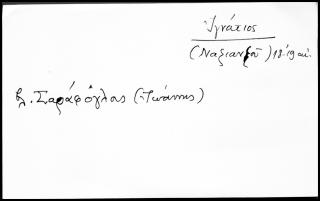 Ἰγνάτιος
(Ναζιανζοῦ) 18-19 αἰ.
βλ. Σαράφογλους (Ἰωάννης)